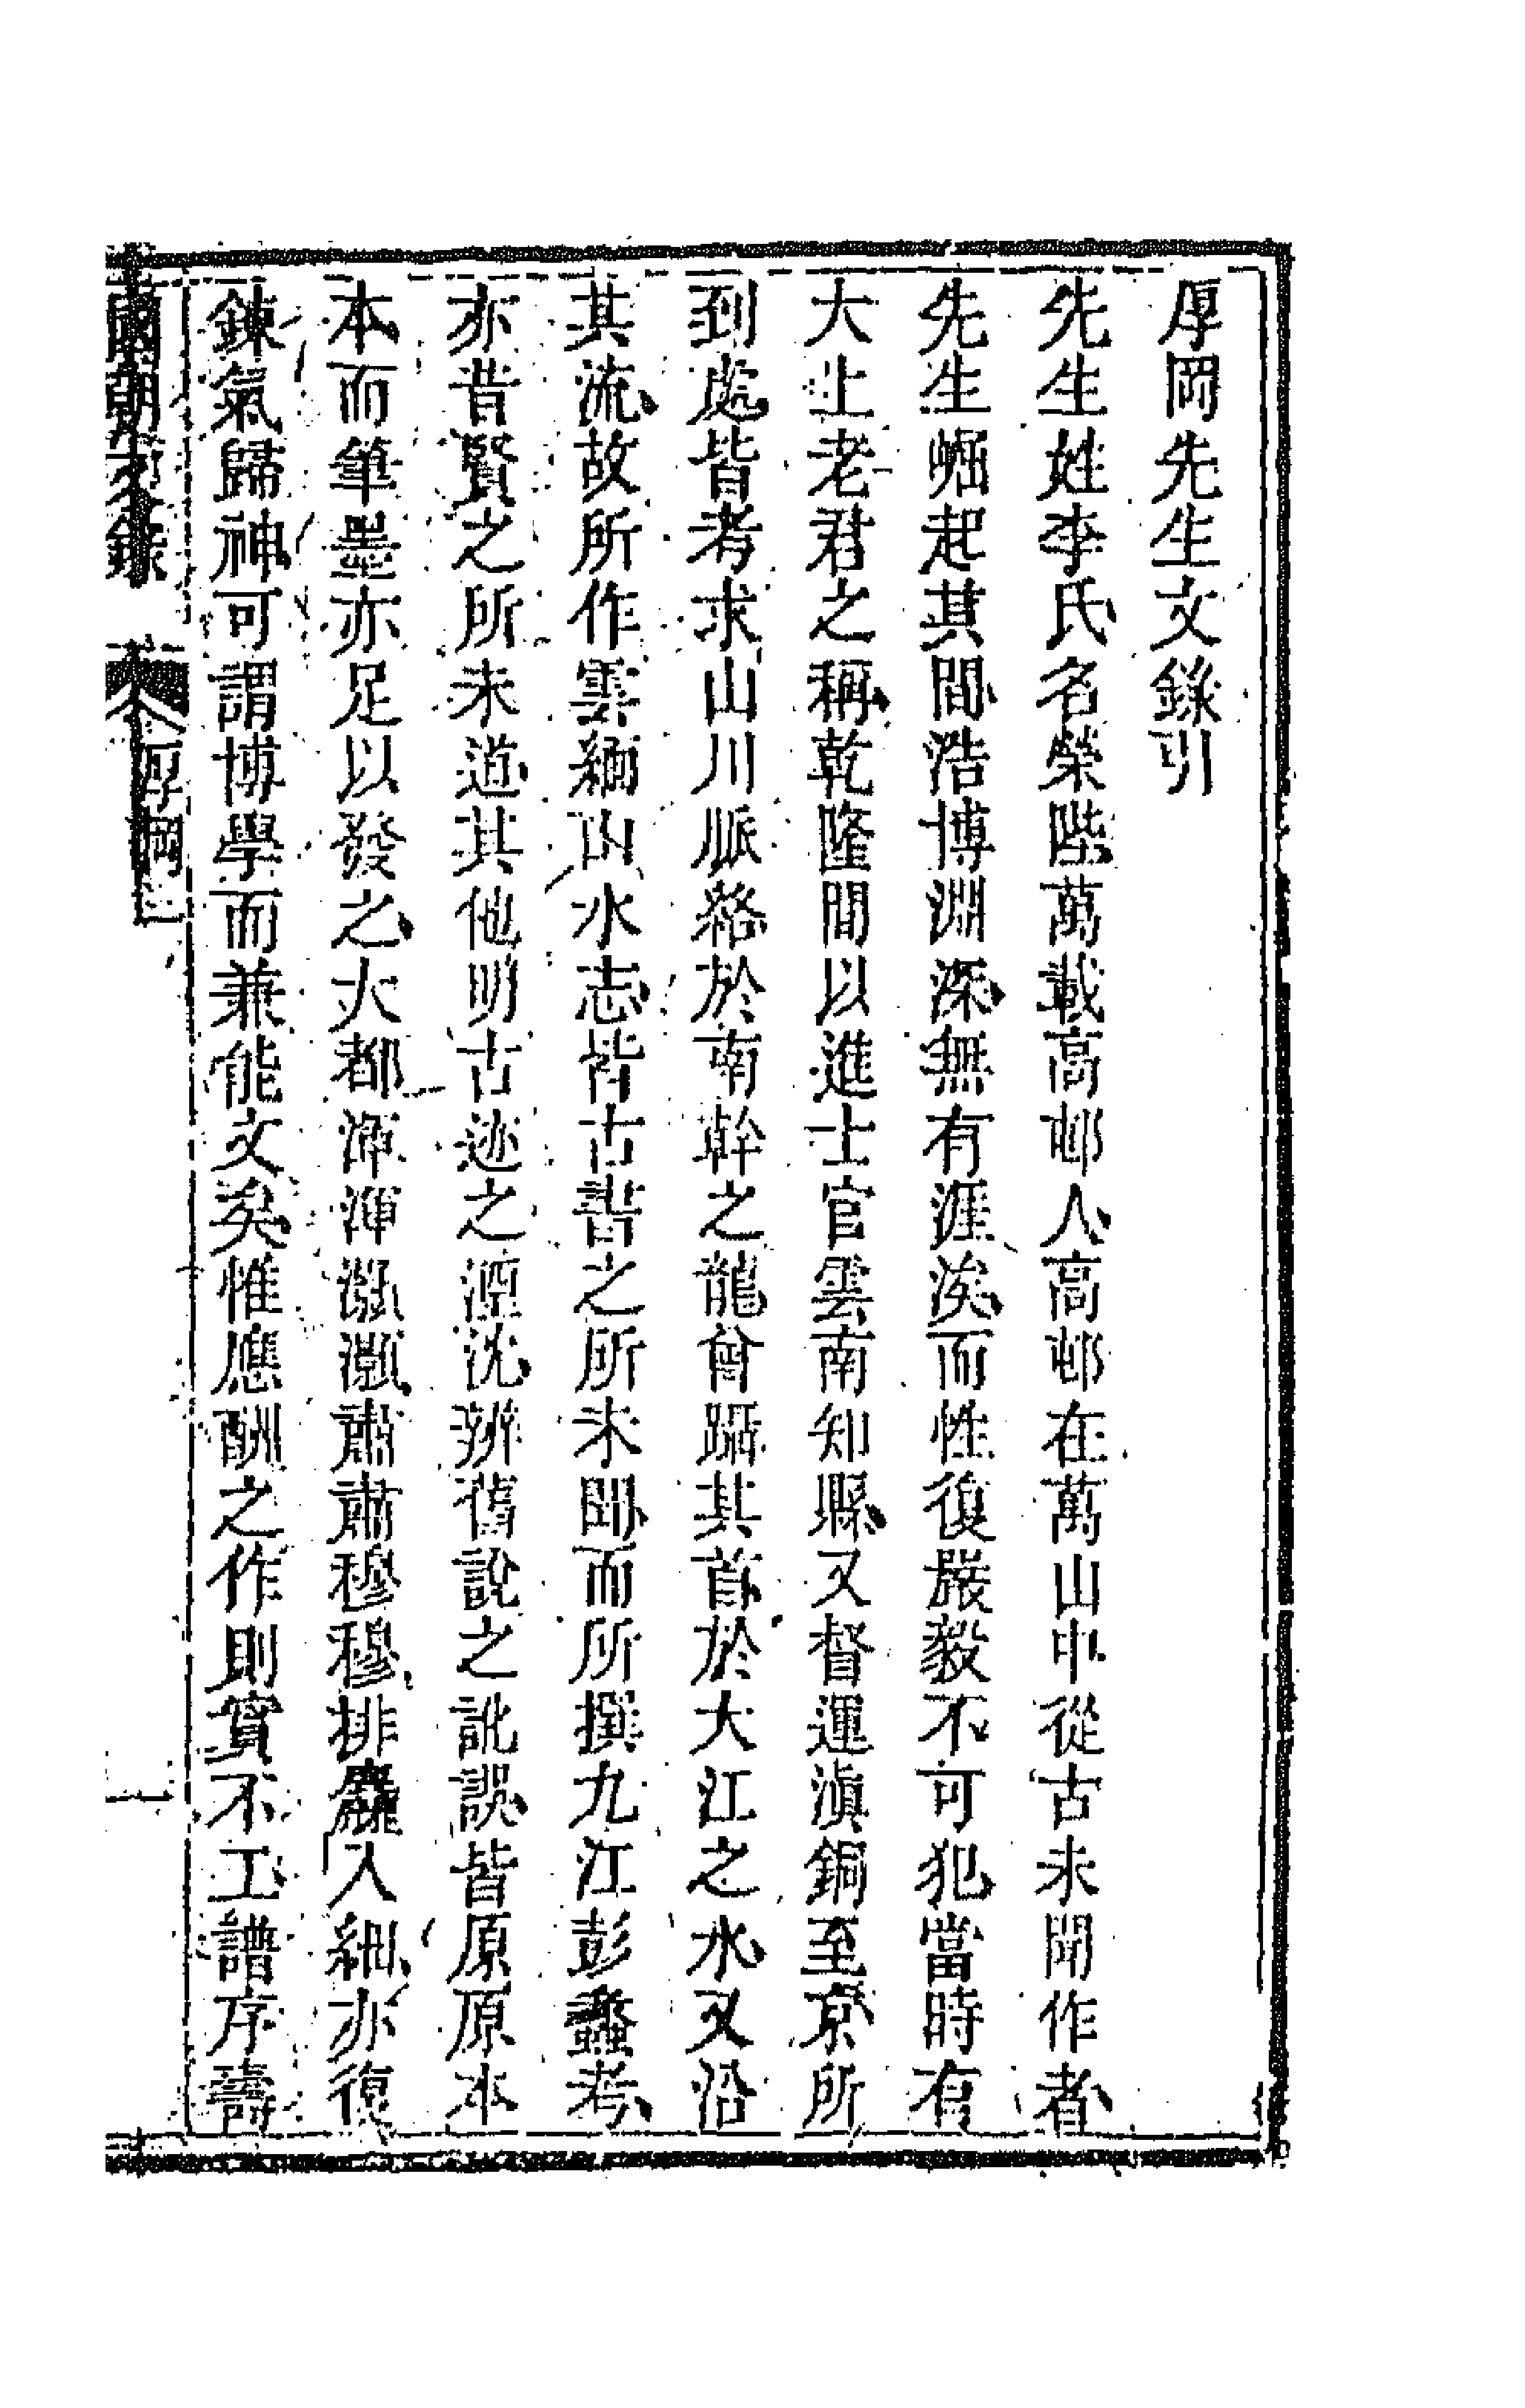 厚岡先生文錄引
先生姓李氏名榮陛萬載高邨人高邨在萬山中從古未聞作者
先生崛起其間浩博淵深無有涯涘而性復嚴毅不可犯當時有
大上老君之稱乾隆間以進士官雲南知縣又督運滇銅至京所
到處皆考求山川脈絡於南幹之龍曾躡其首於大江之水又沿
其流故所作雲緬山水志皆古書之所未聞而所撰九江彭蠡考
亦昔賢之所未道其他明古迹之湮沈辨舊說之訛誤皆原原本
本而筆墨亦足以發之大都渾渾灝灝肅肅穆穆排麤入細亦復
鍊氣歸神可謂博學而兼能文矣惟應酬之作則實不工譜序壽
國朝文錄 厚岡 一